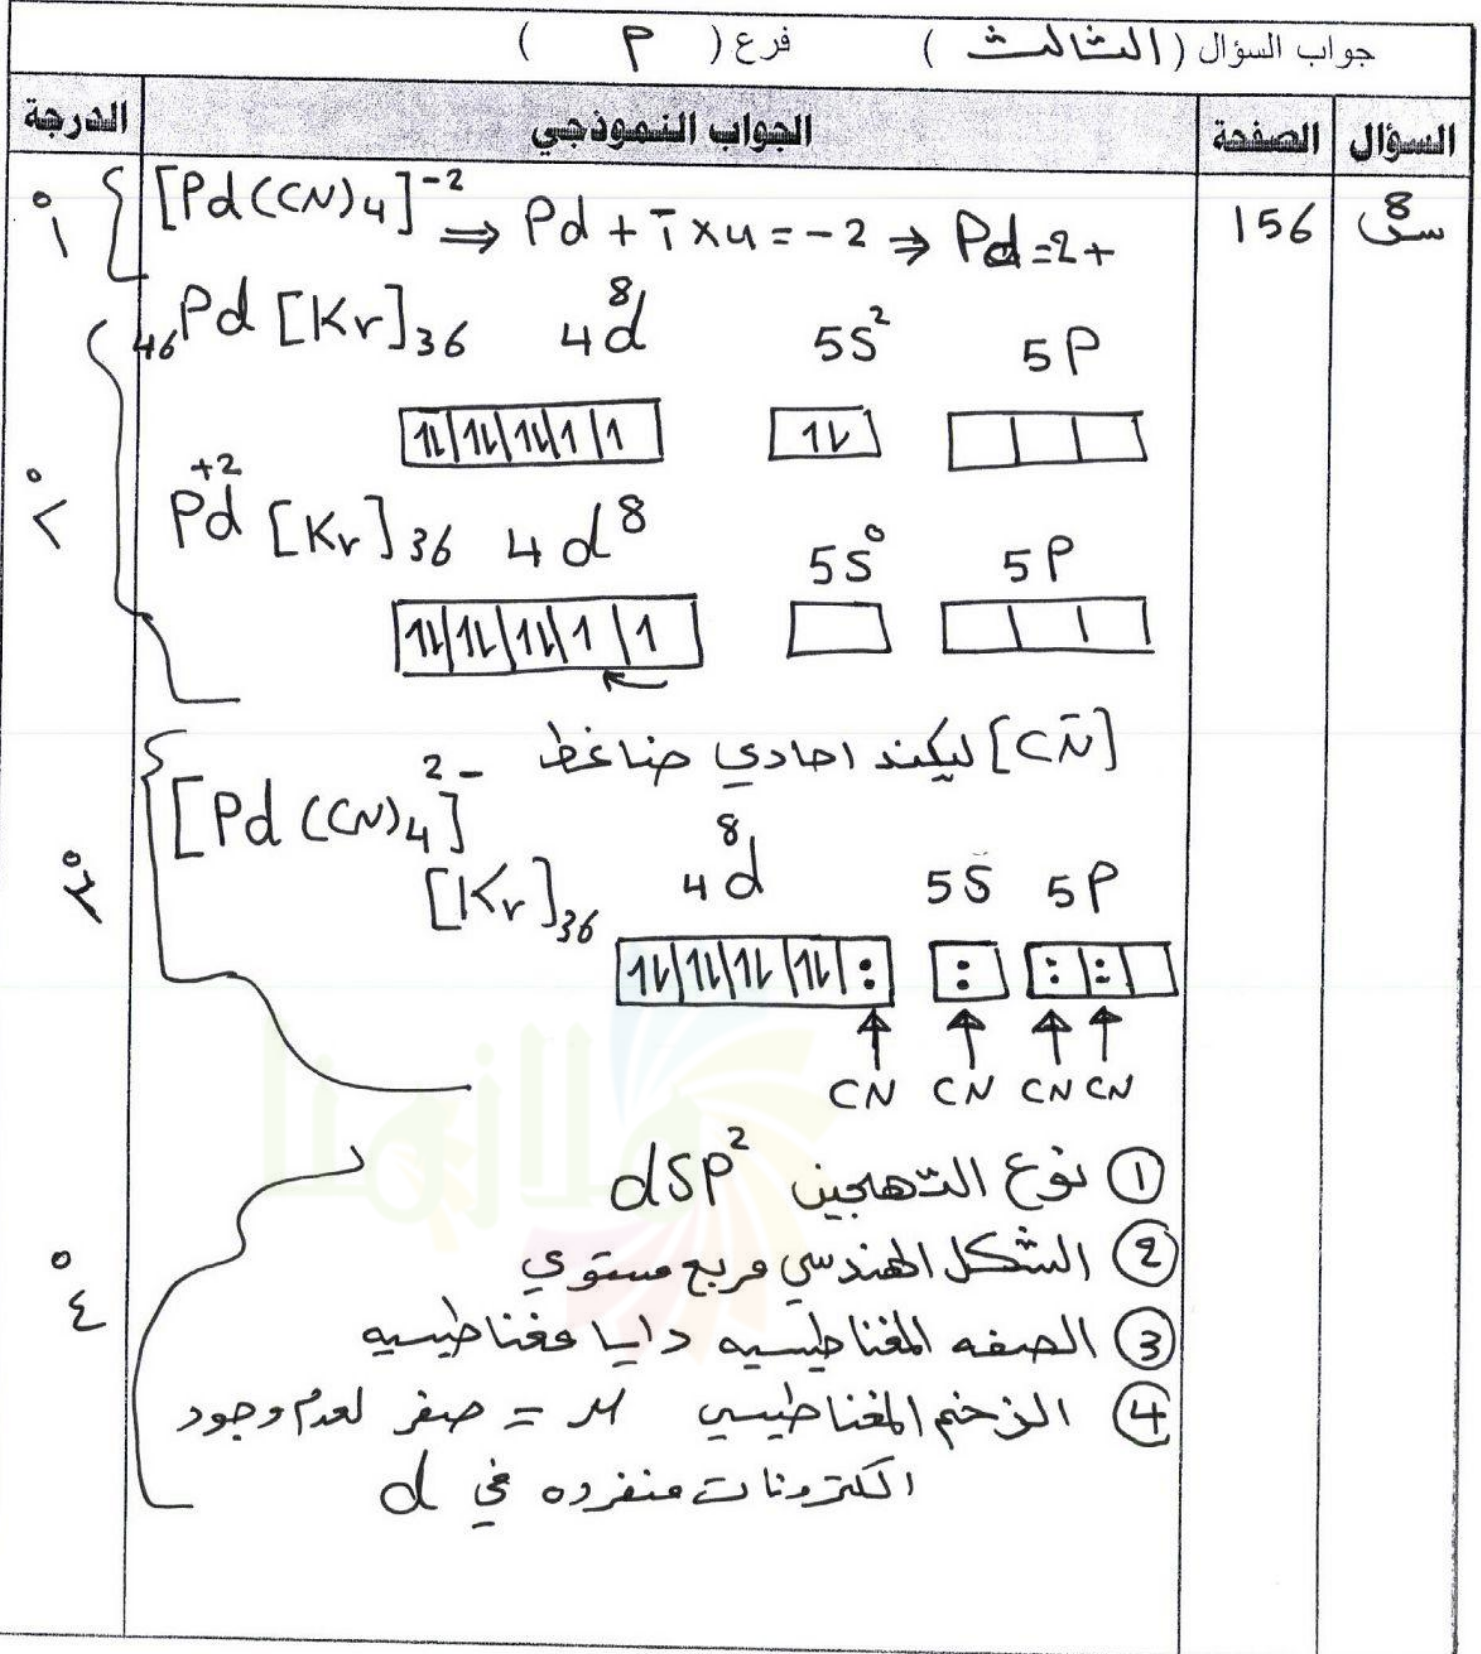 جواب السؤال ( الثالث ) فرع ( م )
السؤال الصفحة الجواب النموذجي الدرجة
س8 156 [Pd(CN)4]-2 ⇒ Pd + 1̄ × 4 = -2 ⇒ Pd = 2+ ١°
46Pd [Kr]36 4d8 5S2 5P
1⇂ 1⇂ 1⇂ 1 1 1⇂
Pd+2 [Kr]36 4d8 5S0 5P ٢°
1⇂ 1⇂ 1⇂ 1 1
[CN̄] ليكند احادي ضاغط
[Pd(CN)4]2-
[Kr]36 4d8 5S 5P ٣°
1⇂ 1⇂ 1⇂ 1⇂ : : : :
CN CN CN CN
① نوع التهجين dSP2
② الشكل الهندسي مربع مستوي
③ الصفه المغناطيسيه دايا مغناطيسيه ٤°
④ الزخم المغناطيسي μ = صفر لعدم وجود
الكترونات منفرده في d
ملازمنا